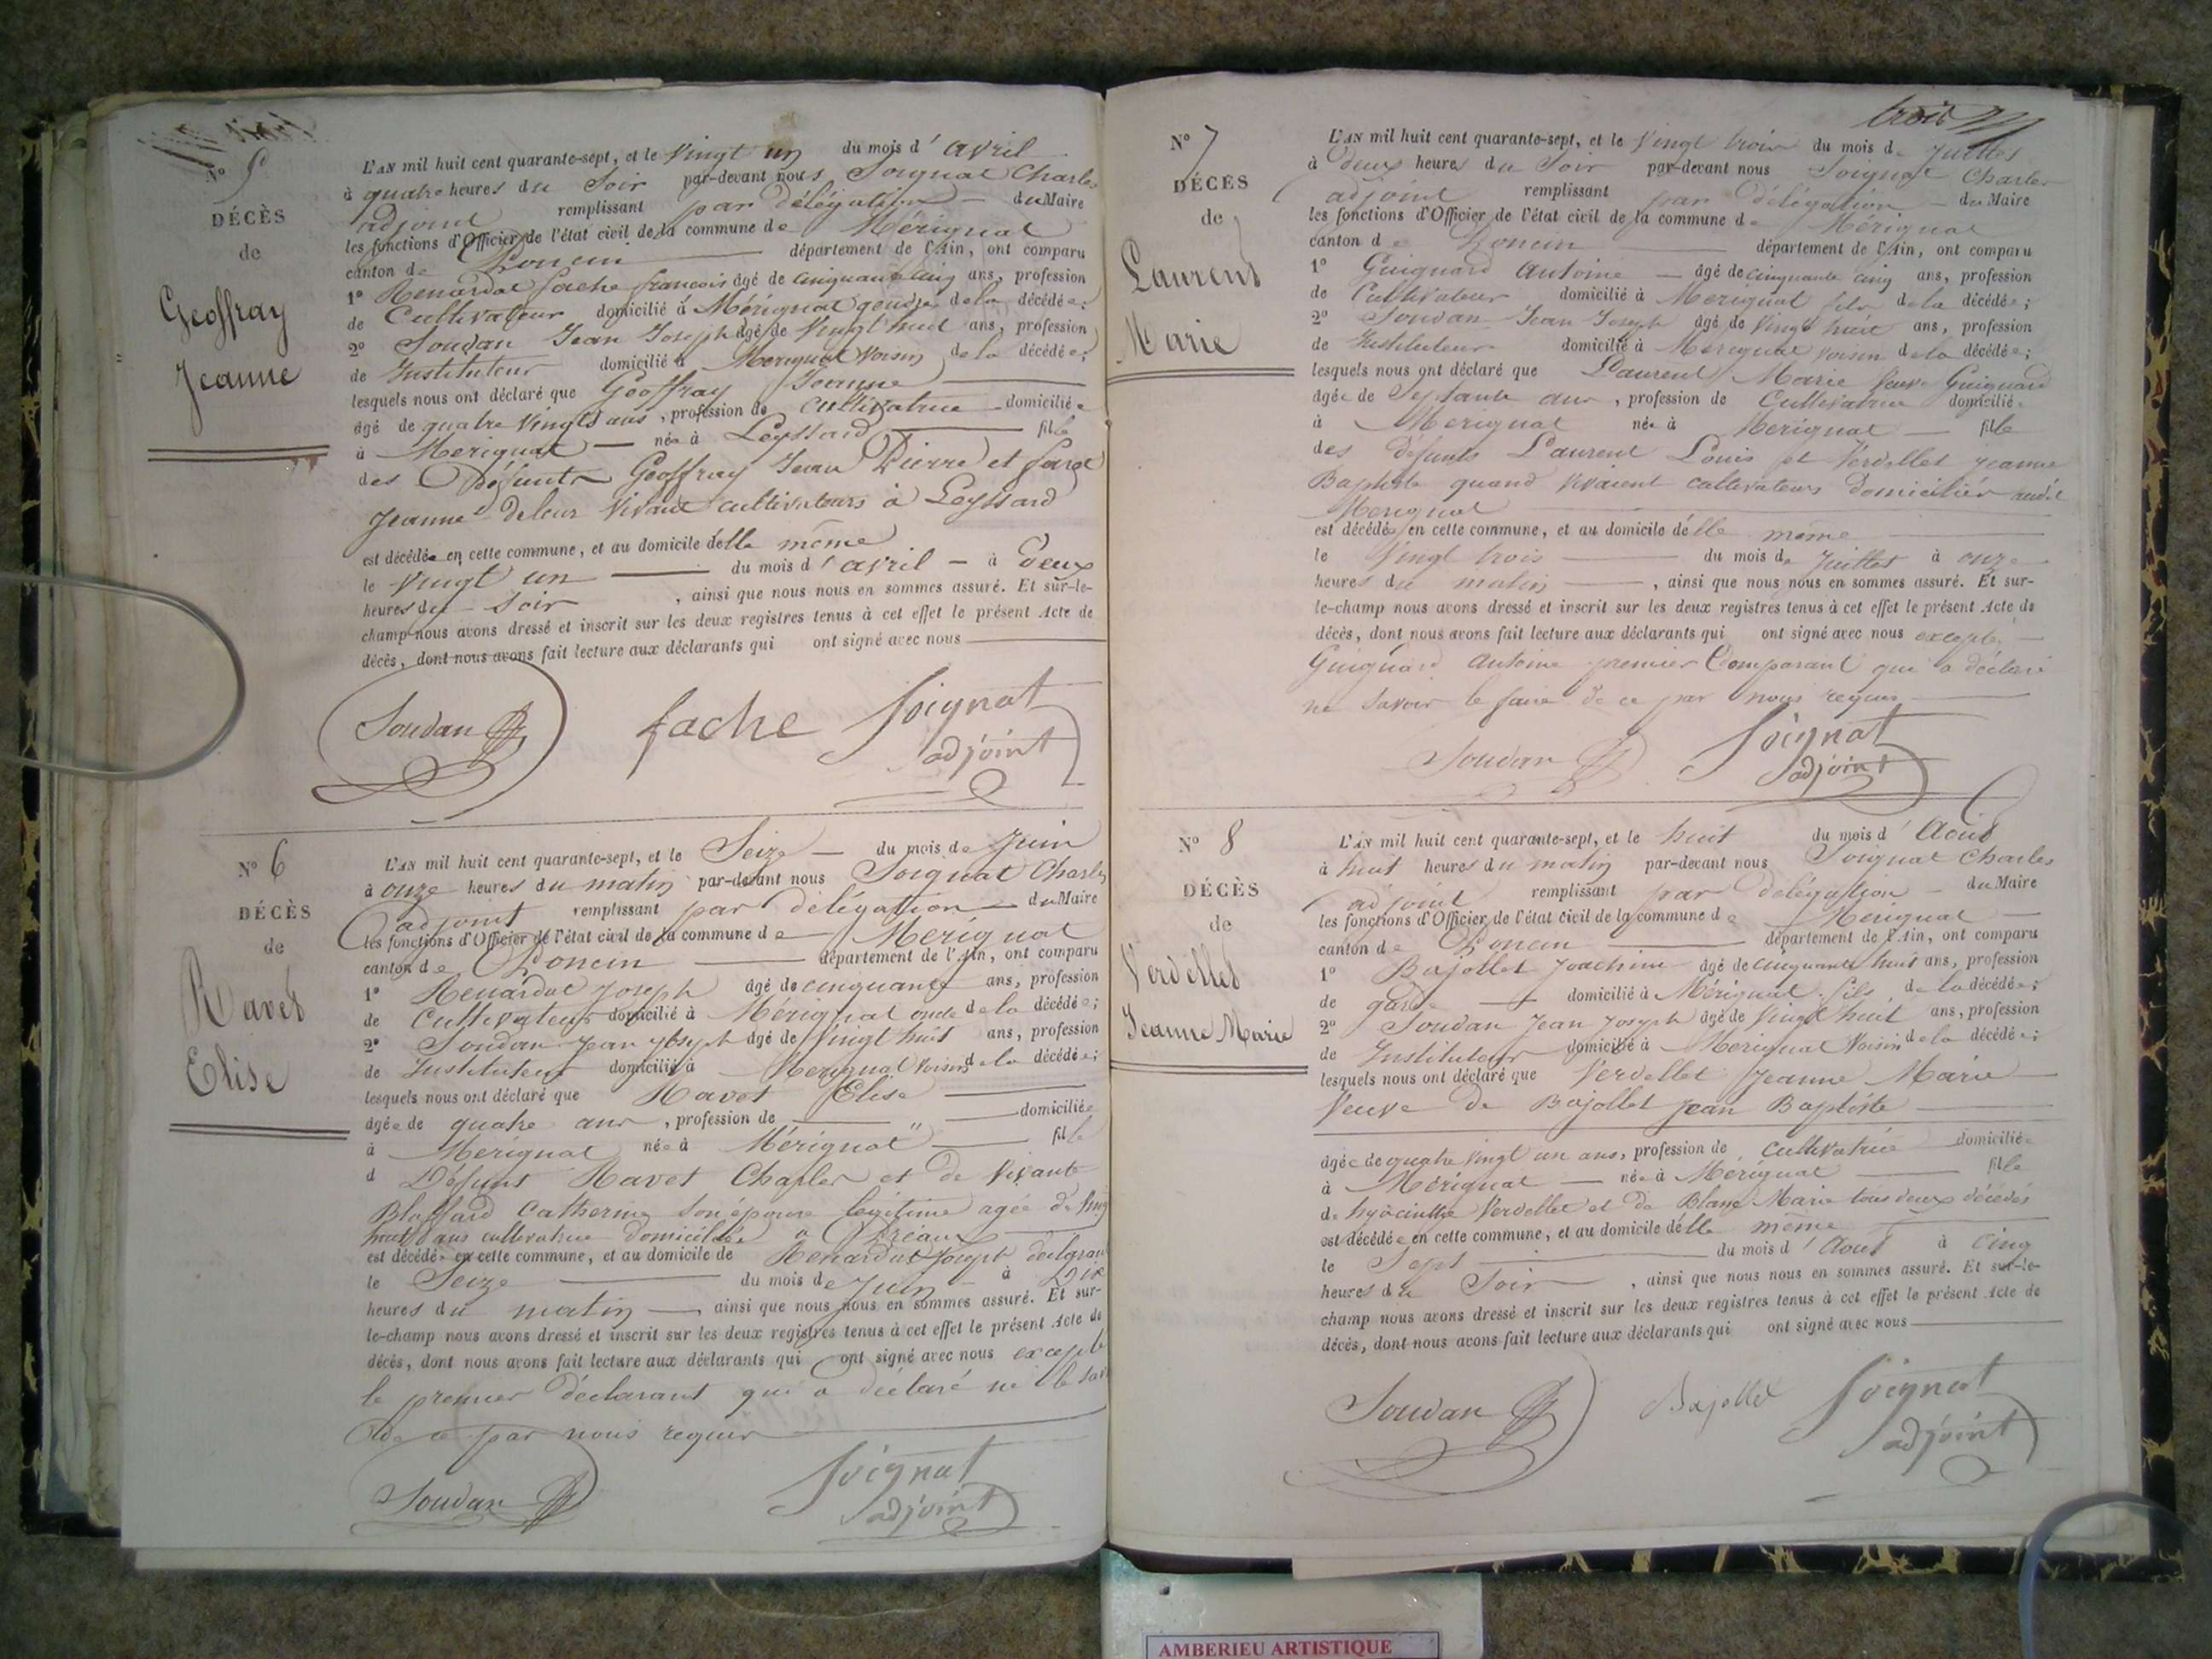 N° 5
DÉCÈS
de
Geoffray
Jeanne
L'AN mil huit cent quarante-sept, et le Vingt un du mois d' avril
à quatre heures du Soir par-devant nous Soignat Charles
adjoint remplissant par délégation du Maire
les fonctions d'Officier de l'état civil de la commune de Mérignat
canton de Poncin département de l'Ain, ont comparu
1° Renardat fache francois âgé de cinquante cinq ans, profession
de Cultivateur domicilié à Mérignat gendre de la décédée;
2° Soudan Jean Joseph âgé de Vingt huit ans, profession
de Instituteur domicilié à Mérignat Voisin de la décédée;
lesquels nous ont déclaré que Geoffray Jeanne
âgé de quatre Vingts ans, profession de Cultivatrice domiciliée
à Mérignat née à Leyssard fille
des Défunts Geoffray Jean Pierre et
Jeanne de leur Vivant cultivateurs à Leyssard
est décédée en cette commune, et au domicile d'elle même
le vingt un du mois d' avril à deux
heures du Soir, ainsi que nous nous en sommes assuré. Et sur-le-
champ nous avons dressé et inscrit sur les deux registres tenus à cet effet le présent Acte de
décès, dont nous avons fait lecture aux déclarants qui ont signé avec nous
Soudan fache Soignat
adjoint
N° 6
DÉCÈS
de
Ravet
Elise
L'AN mil huit cent quarante-sept, et le Seize du mois de Juin
à onze heures du matin par-devant nous Soignat Charles
adjoint remplissant par délégation du Maire
les fonctions d'Officier de l'état civil de la commune de Mérignat
canton de Poncin département de l'Ain, ont comparu
1° Renardat Joseph âgé de cinquante ans, profession
de Cultivateur domicilié à Mérignat oncle de la décédée;
2° Soudan Jean Joseph âgé de Vingt huit ans, profession
de Instituteur domicilié à Mérignat Voisin de la décédée;
lesquels nous ont déclaré que Ravet Elise
âgée de quatre ans, profession de domiciliée
à Mérignat née à Mérignat fille
d Défunt Ravet Charles et de Vivante
Catherine son épouse légitime agée de Vingt
huit ans cultivatrice domiciliée à
est décédée en cette commune, et au domicile de Renardat Joseph
le Seize du mois de Juin à Dix
heures du matin, ainsi que nous nous en sommes assuré. Et sur-
le-champ nous avons dressé et inscrit sur les deux registres tenus à cet effet le présent Acte de
décès, dont nous avons fait lecture aux déclarants qui ont signé avec nous excepté
le premier déclarant qui a déclaré ne le
de ce par nous requis
Soudan Soignat
adjoint
trois
N° 7
DÉCÈS
de
Laurent
Marie
L'AN mil huit cent quarante-sept, et le Vingt trois du mois de Juillet
à deux heures du Soir par-devant nous Soignat Charles
adjoint remplissant par délégation du Maire
les fonctions d'Officier de l'état civil de la commune de Mérignat
canton de Poncin département de l'Ain, ont comparu
1° Guignard Antoine âgé de cinquante cinq ans, profession
de Cultivateur domicilié à Mérignat fils de la décédée;
2° Soudan Jean Joseph âgé de Vingt huit ans, profession
de Instituteur domicilié à Mérignat voisin de la décédée;
lesquels nous ont déclaré que Laurent Marie Veuve Guignard
âgée de Septante ans, profession de Cultivatrice domiciliée
à Mérignat née à Mérignat fille
des défunts Laurent Louis et Verdellet Jeanne
Baptiste quand vivaient cultivateurs domiciliés audit
Mérignat
est décédée en cette commune, et au domicile d'elle même
le Vingt trois du mois de Juillet à onze
heures du matin, ainsi que nous nous en sommes assuré. Et sur-
le-champ nous avons dressé et inscrit sur les deux registres tenus à cet effet le présent Acte de
décès, dont nous avons fait lecture aux déclarants qui ont signé avec nous excepté
Guignard Antoine premier Comparant qui a déclaré
ne savoir le faire de ce par nous requis
Soudan Soignat
adjoint
N° 8
DÉCÈS
de
Verdellet
Jeanne Marie
L'AN mil huit cent quarante-sept, et le huit du mois d' Aout
à huit heures du matin par-devant nous Soignat Charles
adjoint remplissant par délégation du Maire
les fonctions d'Officier de l'état civil de la commune de Mérignat
canton de Poncin département de l'Ain, ont comparu
1° Bajollet Joachim âgé de cinquante huit ans, profession
de garde domicilié à Mérignat fils de la décédée;
2° Soudan Jean Joseph âgé de Vingt huit ans, profession
de Instituteur domicilié à Mérignat Voisin de la décédée;
lesquels nous ont déclaré que Verdellet Jeanne Marie
Veuve de Bajollet Jean Baptiste
âgée de quatre Vingt un ans, profession de Cultivatrice domiciliée
à Mérignat née à Mérignat fille
de hyacinthe Verdellet et de Blanc Marie tous deux décédés
est décédée en cette commune, et au domicile d'elle même
le Sept du mois d' Aout à Cinq
heures du Soir, ainsi que nous nous en sommes assuré. Et sur-le-
champ nous avons dressé et inscrit sur les deux registres tenus à cet effet le présent Acte de
décès, dont nous avons fait lecture aux déclarants qui ont signé avec nous
Soudan Bajollet Soignat
adjoint
AMBERIEU ARTISTIQUE